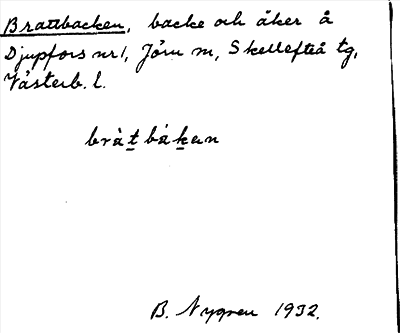 Brattbacken, backe och åker å
Djupfors nr 1, Jörn sn, Skellefteå tg,
Västerb. l.
bràt bákan
B. Nygren 1932.